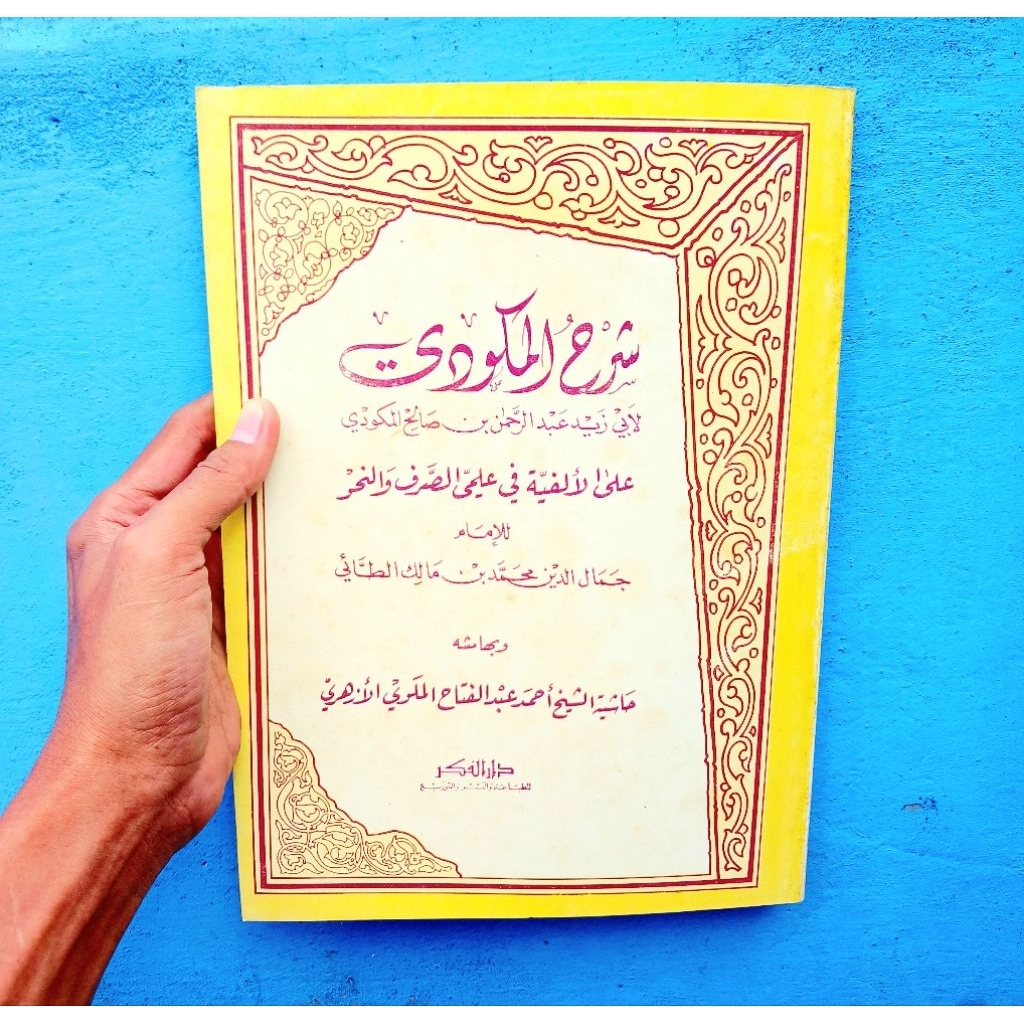 شرح المكودي
لأبي زيد عبد الرحمن بن صالح المكودي
على الألفية في علمي الصرف والنحو
للإمام
جمال الدين محمد بن مالك الطائي
وبهامشه
حاشية الشيخ أحمد عبد الفتاح الملوي الأزهري
دار الفكر
للطباعة والنشر والتوزيع